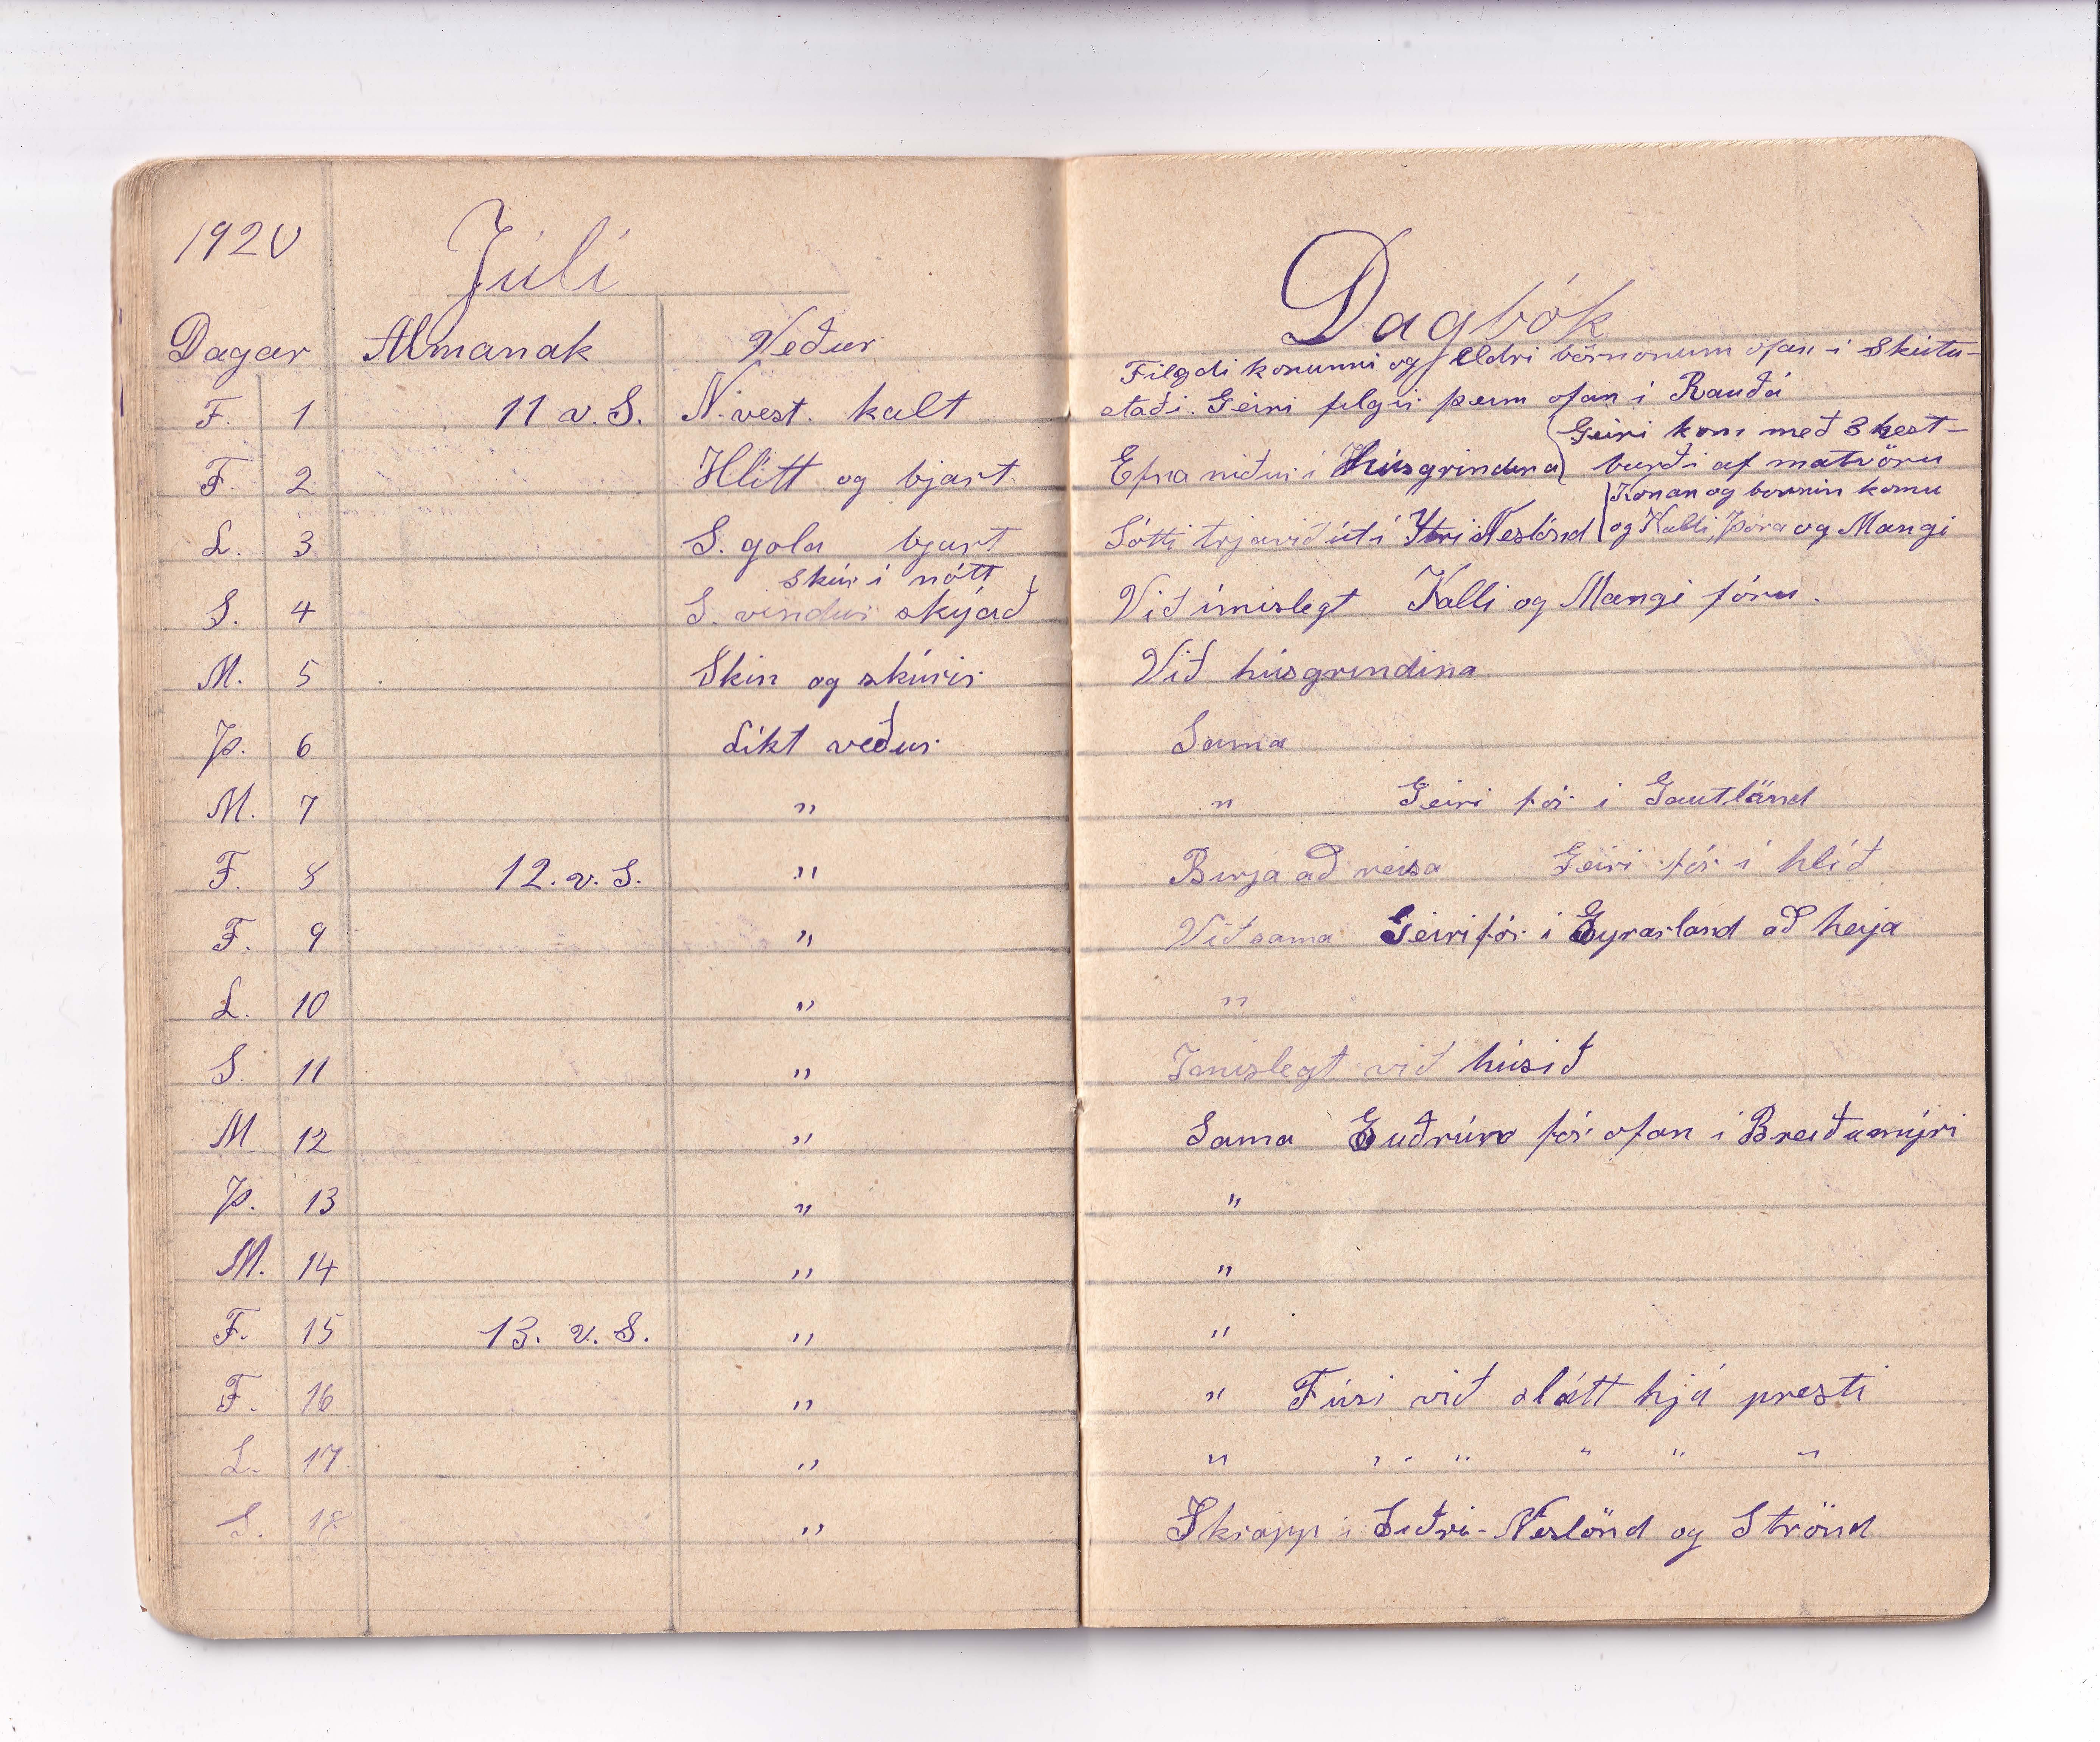 1920 Júlí Dagbók
Dagar Almanak Veður
Filgdi konunni og eldri börnonum ofan í Skútu-
F. 1 11 v. S. N. vest. kalt staði. Geiri filgir þeim ofan í Rauðá
Geiri kom með 3 hest-
F. 2 Hlítt og bjart Efna niður í húsgrindina burði af matvöru
Konan og börnin komu
L. 3 S. gola bjart Sótti trjávið út í Ytri Neslönd og Kalli, Þóra og Mangi
skúr í nótt
S. 4 S. vindur skýjað Við ímislegt Kalli og Mangi fóru.
M. 5 Skin og skúrir Við húsgrindina
Þ. 6 Líkt veður Sama
M. 7 " " Geiri fór í Gautlönd
F. 8 12. v. S. " Birja að reisa Geiri fór í hlíð
F. 9 " Við sama Geiri fór í Eyrarland að heija
L. 10 " "
S. 11 " Imislegt við húsið
M 12 " Sama Guðrún fór ofan í Breiðumýri
Þ. 13 " "
M. 14 " "
F. 15 13. v. S. " "
F. 16 " " Fúsi við slátt hjá presti
L. 17. " " " " " " "
S. 18 " Skrapp í Siðri-Neslönd og Strönd